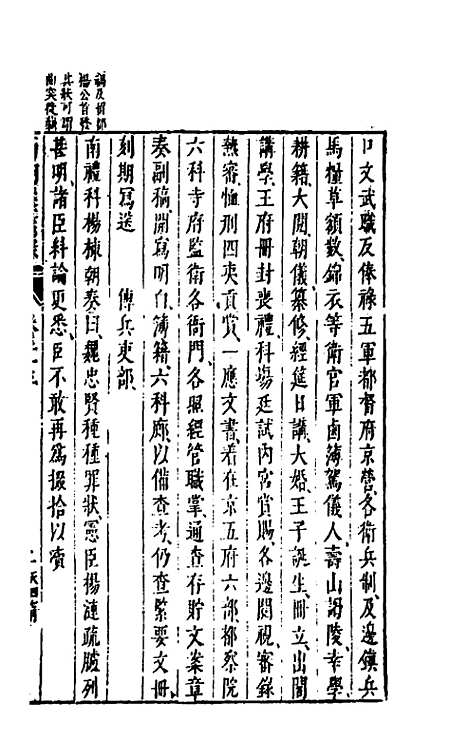 口文武職及俸祿五軍都督府京營各衛兵制及邊鎮兵
馬糧草額數錦衣等衛官軍鹵簿駕儀人壽山謁陵幸學
耕籍大閱朝儀纂修經筵日講大婚王子誕生冊立出閣
講學王府冊封喪禮科塲廷試內宮賞賜各邊閱視審錄
熱審恤刑四夷貢賞一應文書着在京五府六部都察院
六科寺府監衛各衙門各照經管職掌通查存貯文案章
奏副稿開寫明白簿籍六科廊以備查考仍查緊要文冊
刻期寫送　　傳兵吏部
南禮科楊棟朝奏曰魏忠賢種種罪狀憲臣楊漣疏臚列
甚明諸臣糾論更悉臣不敢再爲掇拾以瀆
楊公首發
其狀可謂
曲突徙薪